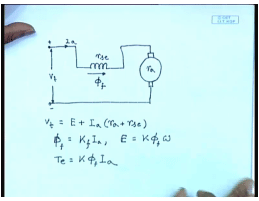 Ia
+
rse
ra
Vt
ϕf
-
Vt = E + Ia (ra + rse)
ϕf = Kf Ia, E = K ϕf ω
Te = K ϕf Ia